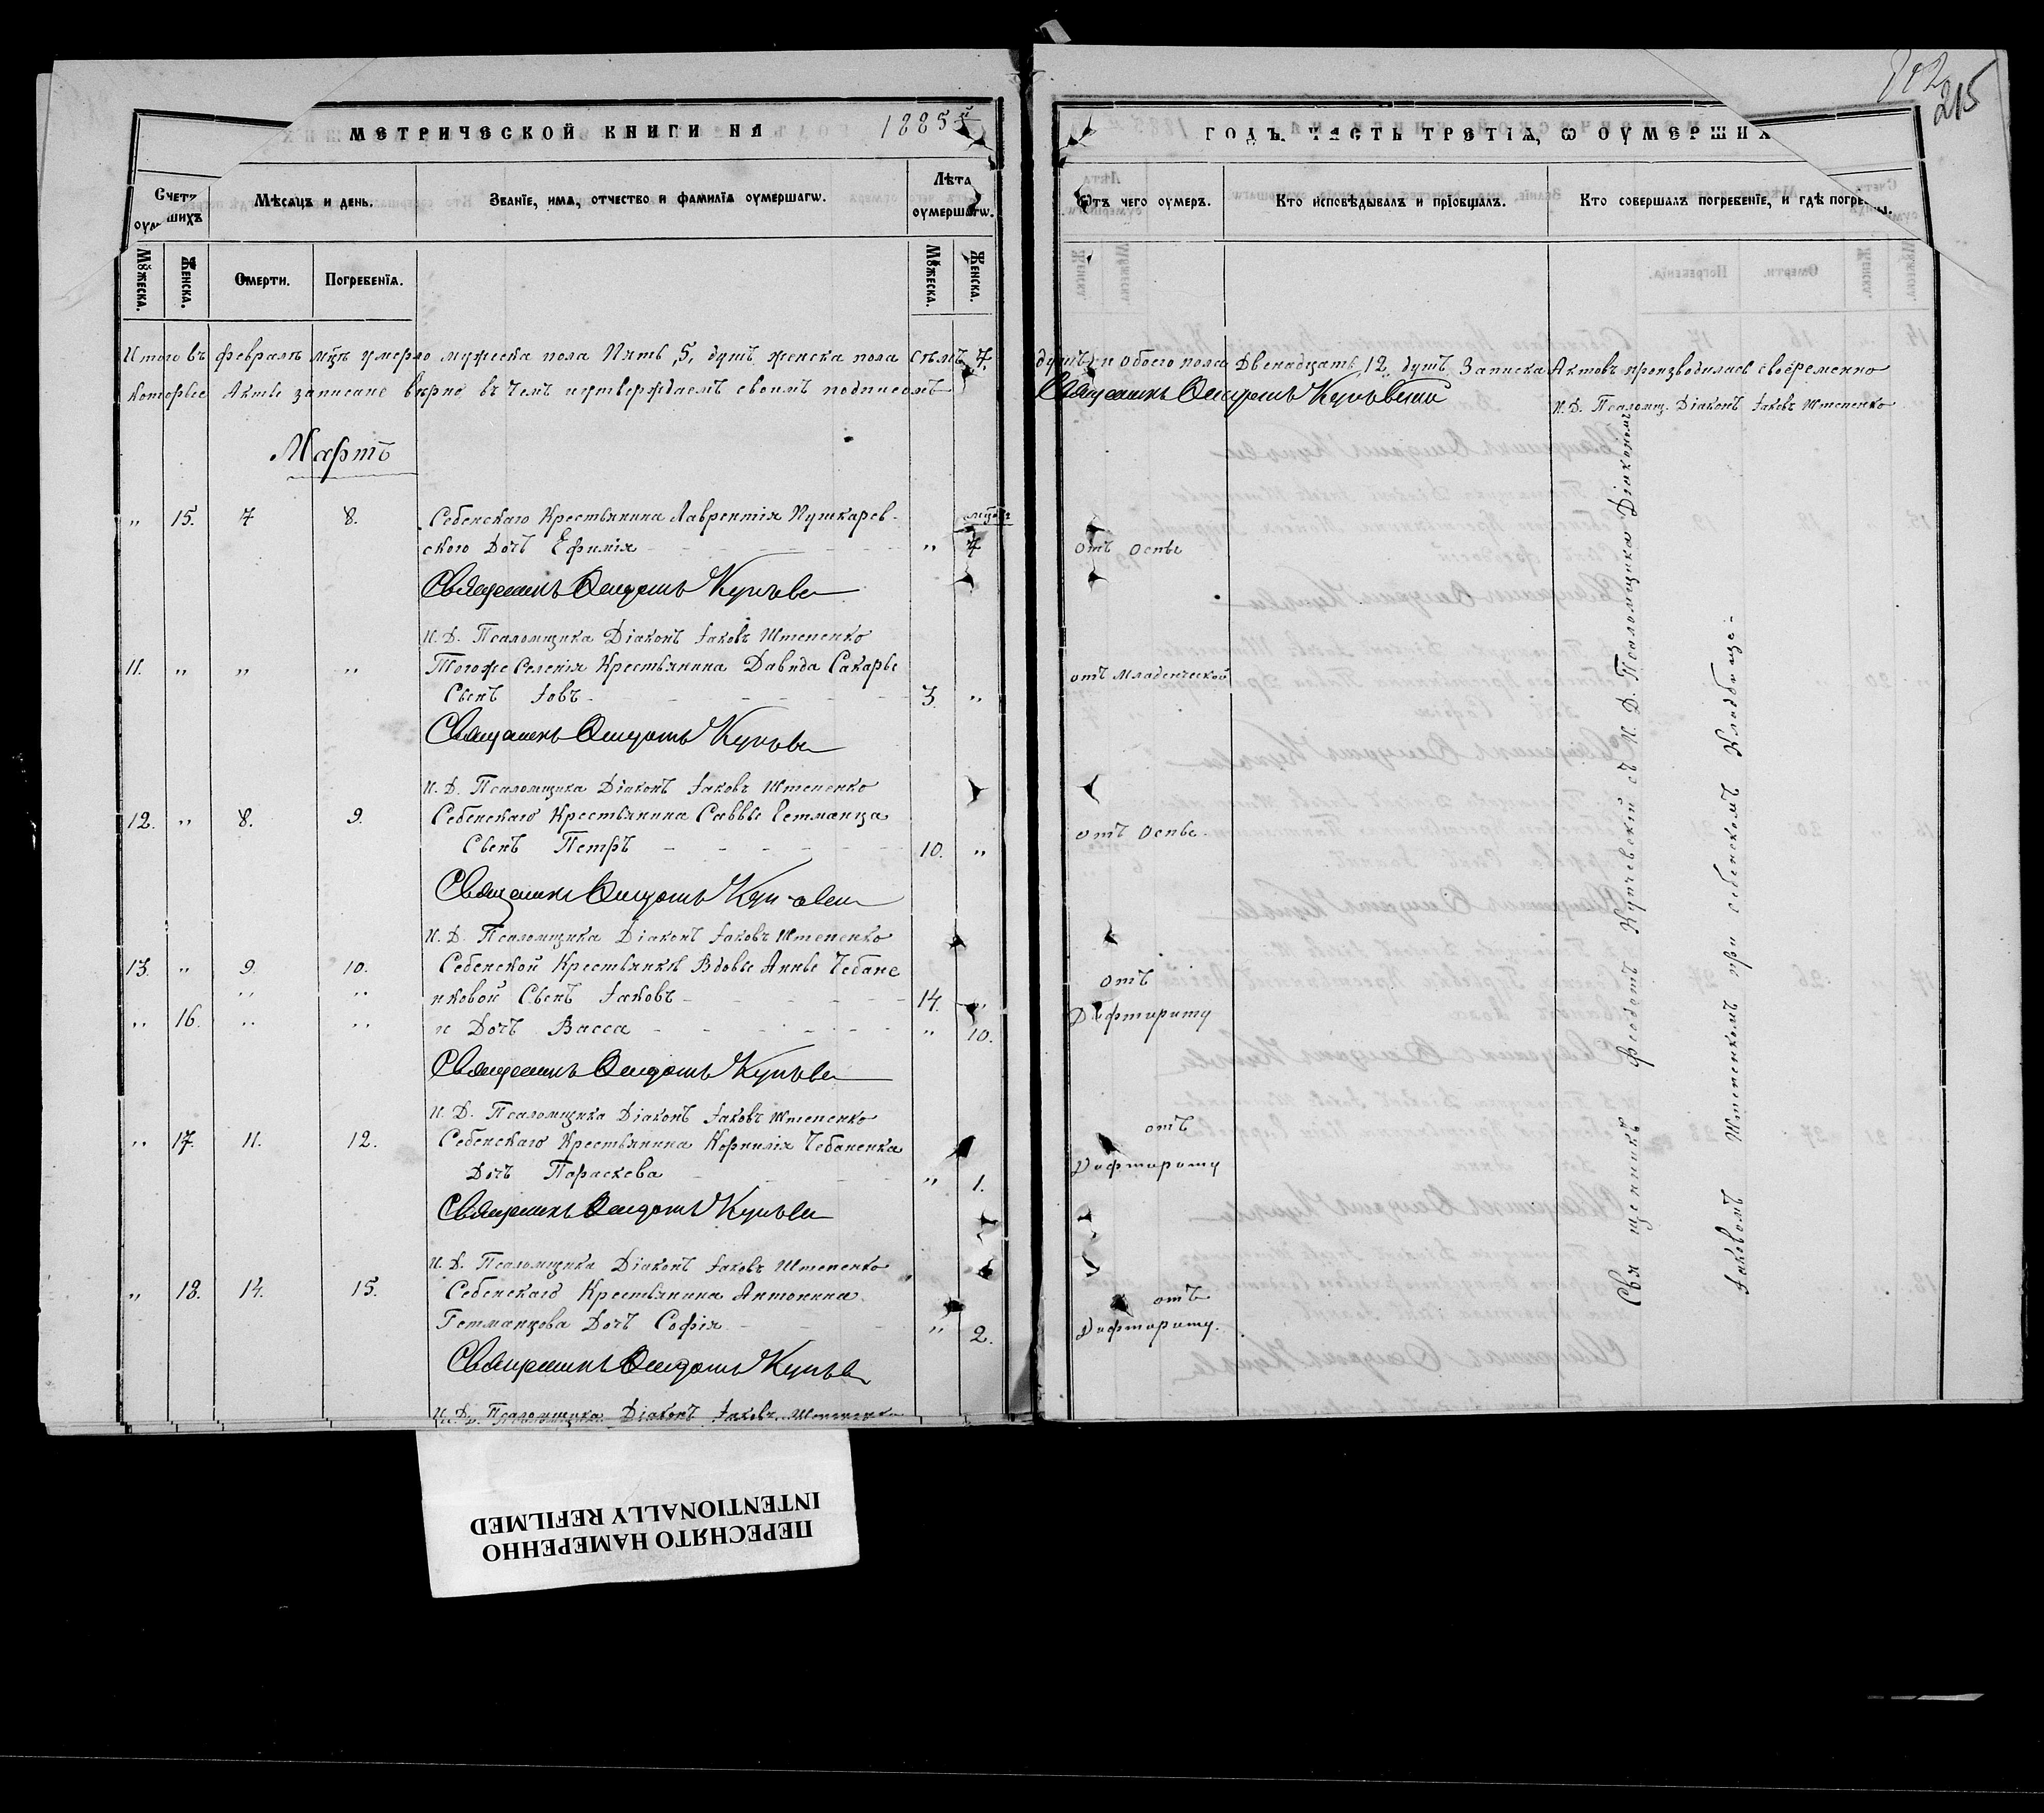 215
МЕТРИЧЕСКОЙ КНИГИ НА 1885й
ГОДЪ, ЧАСТЬ ТРЕТІѦ, Ѡ ОУМЕРШИХ
Счетъ оум шихъ
Мѣсѧцъ и день.
Званїе, имѧ, отчество и фамилїѧ оумершагѡ.
Лѣта оумершагѡ.
Ѿтъ чего оумеръ.
Кто исповѣдывалъ и прїобщалъ.
Кто совершалъ погребенїе, и гдѣ погребены.
Мꙋжеска.
Женска.
Смерти.
Погребенїѧ.
Мꙋжеска.
Женска.
Итого въ февралѣ мцѣ умерло мужеска пола Пять, 5, душъ женска пола сѣмъ 7, душъ, и обоего пола Двенадцать, 12, душъ Записка Актовъ производилась своèременно
которые Акты записане вѣрно въ чемъ и утверждаемъ своимъ подписомъ
Священникъ Феодотъ Купчевскій
И. Д. Псаломщ. Діаконъ Іаковъ Штепенко
Мартъ
„ 15. 7 8. Себенскаго Крестьянина Лаврентія Пушкарев-
ского Дочь Ефимія „ мцовъ 7 отъ Оспы
Священникъ Феодотъ Купчевс
И. Д. Псаломщика Діаконъ Іаковъ Штепенко
11. „ „ „ Тогоже Селенія Крестьянина Давида Сахары
Сынъ Іовъ 3. „ отъ Младенческой
Священникъ Феодотъ Купчевс
И. Д. Псаломщика Діаконъ Іаковъ Штепенко
12. „ 8. 9. Себенскаго Крестьянина Саввы Гетманца
Сынъ Петръ 10. „ отъ Оспы.
Священникъ Феодотъ Купчевс
И. Д. Псаломщика Діаконъ Іаковъ Штепенко
13. „ 9. 10. Себенской Крестьянки Вдовы Анны Чебане
нковой Сынъ Іаковъ 14. „ отъ
„ 16. „ „ и Дочь Васса „ 10. Дифтириту
Священникъ Феодотъ Купчевс
И. Д. Псаломщика Діаконъ Іаковъ Штепенко
„ 17. 11. 12. Себенскаго Крестьянина Корнилія Чебаненка отъ
Дочь Параскева „ 1. Дифтириту
Священникъ Феодотъ Купчевс
И. Д. Псаломщика Діаконъ Іаковъ Штепенко
„ 18. 14. 15. Себенскаго Крестьянина Антонина отъ
Гетманцова Дочь Софія „ 2. Дифтириту.
Священникъ Феодотъ Купчевс
И. Д. Псаломщика Діаконъ Іаковъ Штепенко
Священникъ Феодотъ Купчевскій съ И. Д. Псаломщика Діакономъ
Іаковомъ Штепенкомъ при себенскомъ Кладбище-
ПЕРЕСНЯТО НАМЕРЕННО
INTENTIONALLY REFILMED